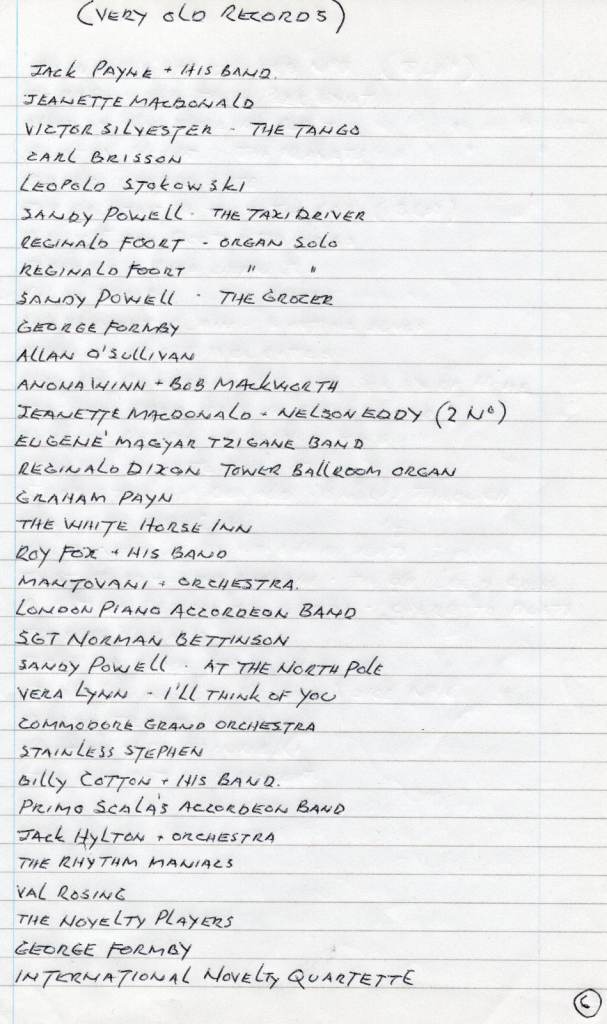 (VERY OLD RECORDS)
JACK PAYNE + HIS BAND.
JEANETTE MACDONALD
VICTOR SILVESTER - THE TANGO
CARL BRISSON
LEOPOLD STOKOWSKI
SANDY POWELL - THE TAXI DRIVER
REGINALD FOORT - ORGAN SOLO
REGINALD FOORT " "
SANDY POWELL - THE GROCER
GEORGE FORMBY
ALLAN O'SULLIVAN
ANONA WINN + BOB MACKWORTH
JEANETTE MACDONALD - NELSON EDDY (2 No)
EUGENE' MAGYAR TZIGANE BAND
REGINALD DIXON TOWER BALLROOM ORGAN
GRAHAM PAYN
THE WHITE HORSE INN
ROY FOX + HIS BAND
MANTOVANI + ORCHESTRA.
LONDON PIANO ACCORDEON BAND
SGT NORMAN BETTINSON
SANDY POWELL - AT THE NORTH POLE
VERA LYNN - I'LL THINK OF YOU
COMMODORE GRAND ORCHESTRA
STAINLESS STEPHEN
BILLY COTTON + HIS BAND.
PRIMO SCALA'S ACCORDEON BAND
JACK HYLTON + ORCHESTRA
THE RHYTHM MANIACS
VAL ROSING
THE NOVELTY PLAYERS
GEORGE FORMBY
INTERNATIONAL NOVELTY QUARTETTE
6